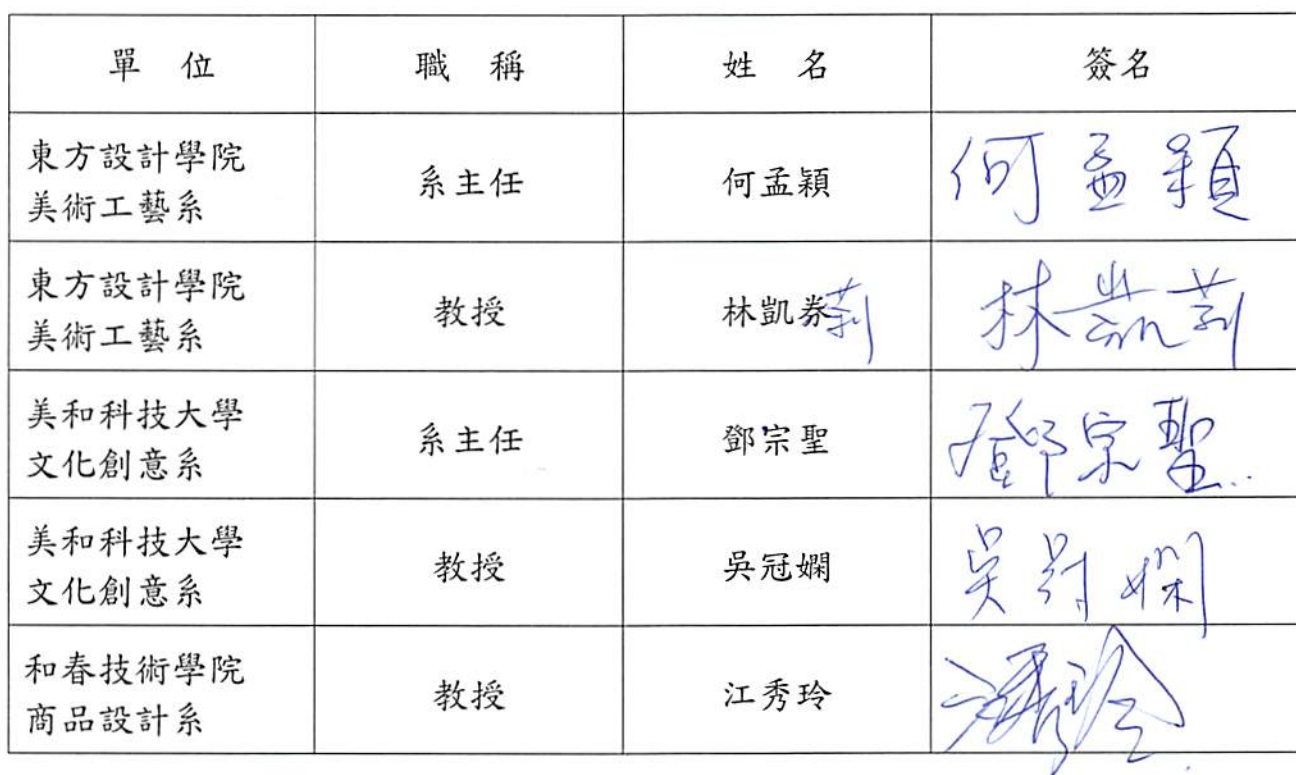 單位 職稱 姓名 簽名
東方設計學院
美術工藝系
系主任 何孟穎 何孟穎
東方設計學院
美術工藝系
教授 林凱券 莉 林凱莉
美和科技大學
文化創意系
系主任 鄧宗聖 鄧宗聖
美和科技大學
文化創意系
教授 吳冠嫻 吳冠嫻
和春技術學院
商品設計系
教授 江秀玲 江秀玲